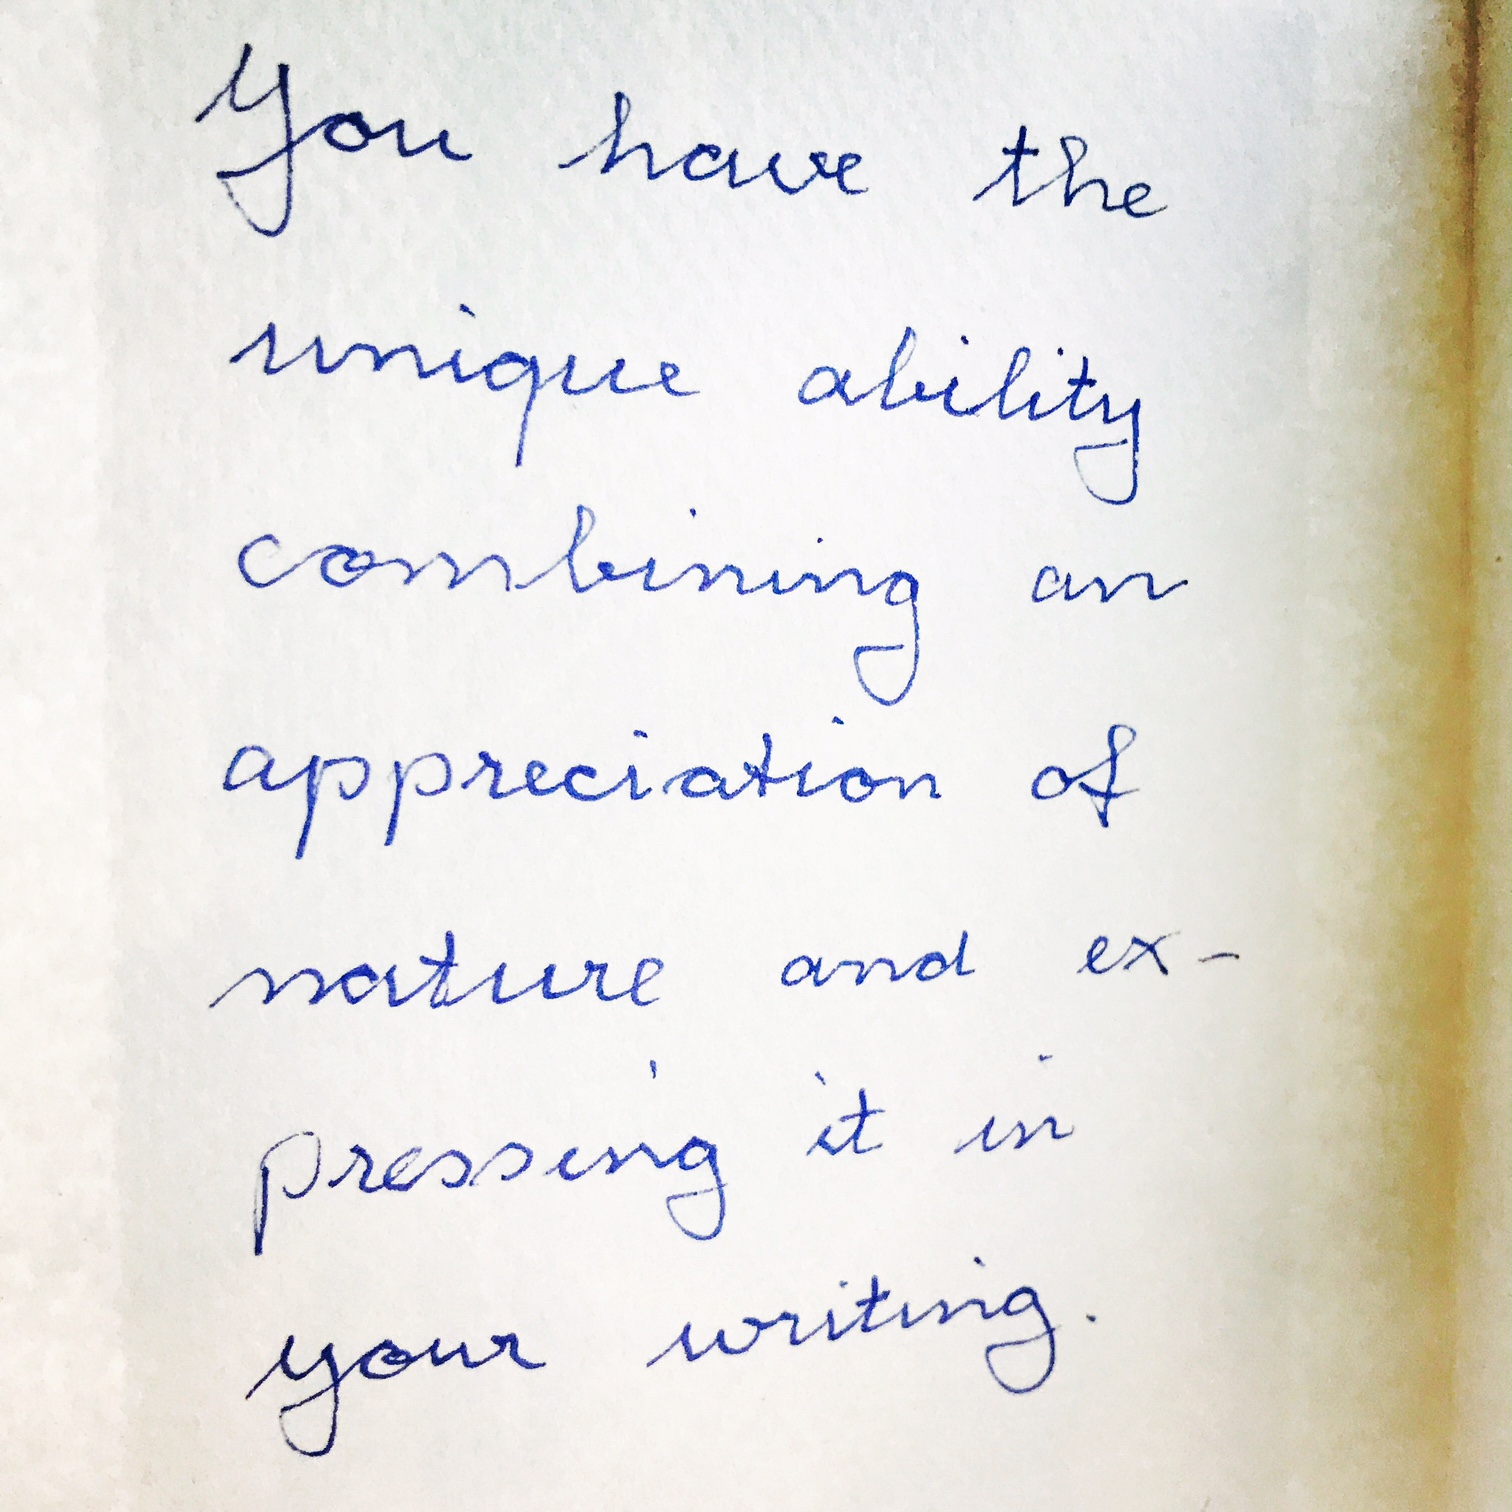 You have the
unique ability
combining an
appreciation of
nature and ex-
pressing it in
your writing.